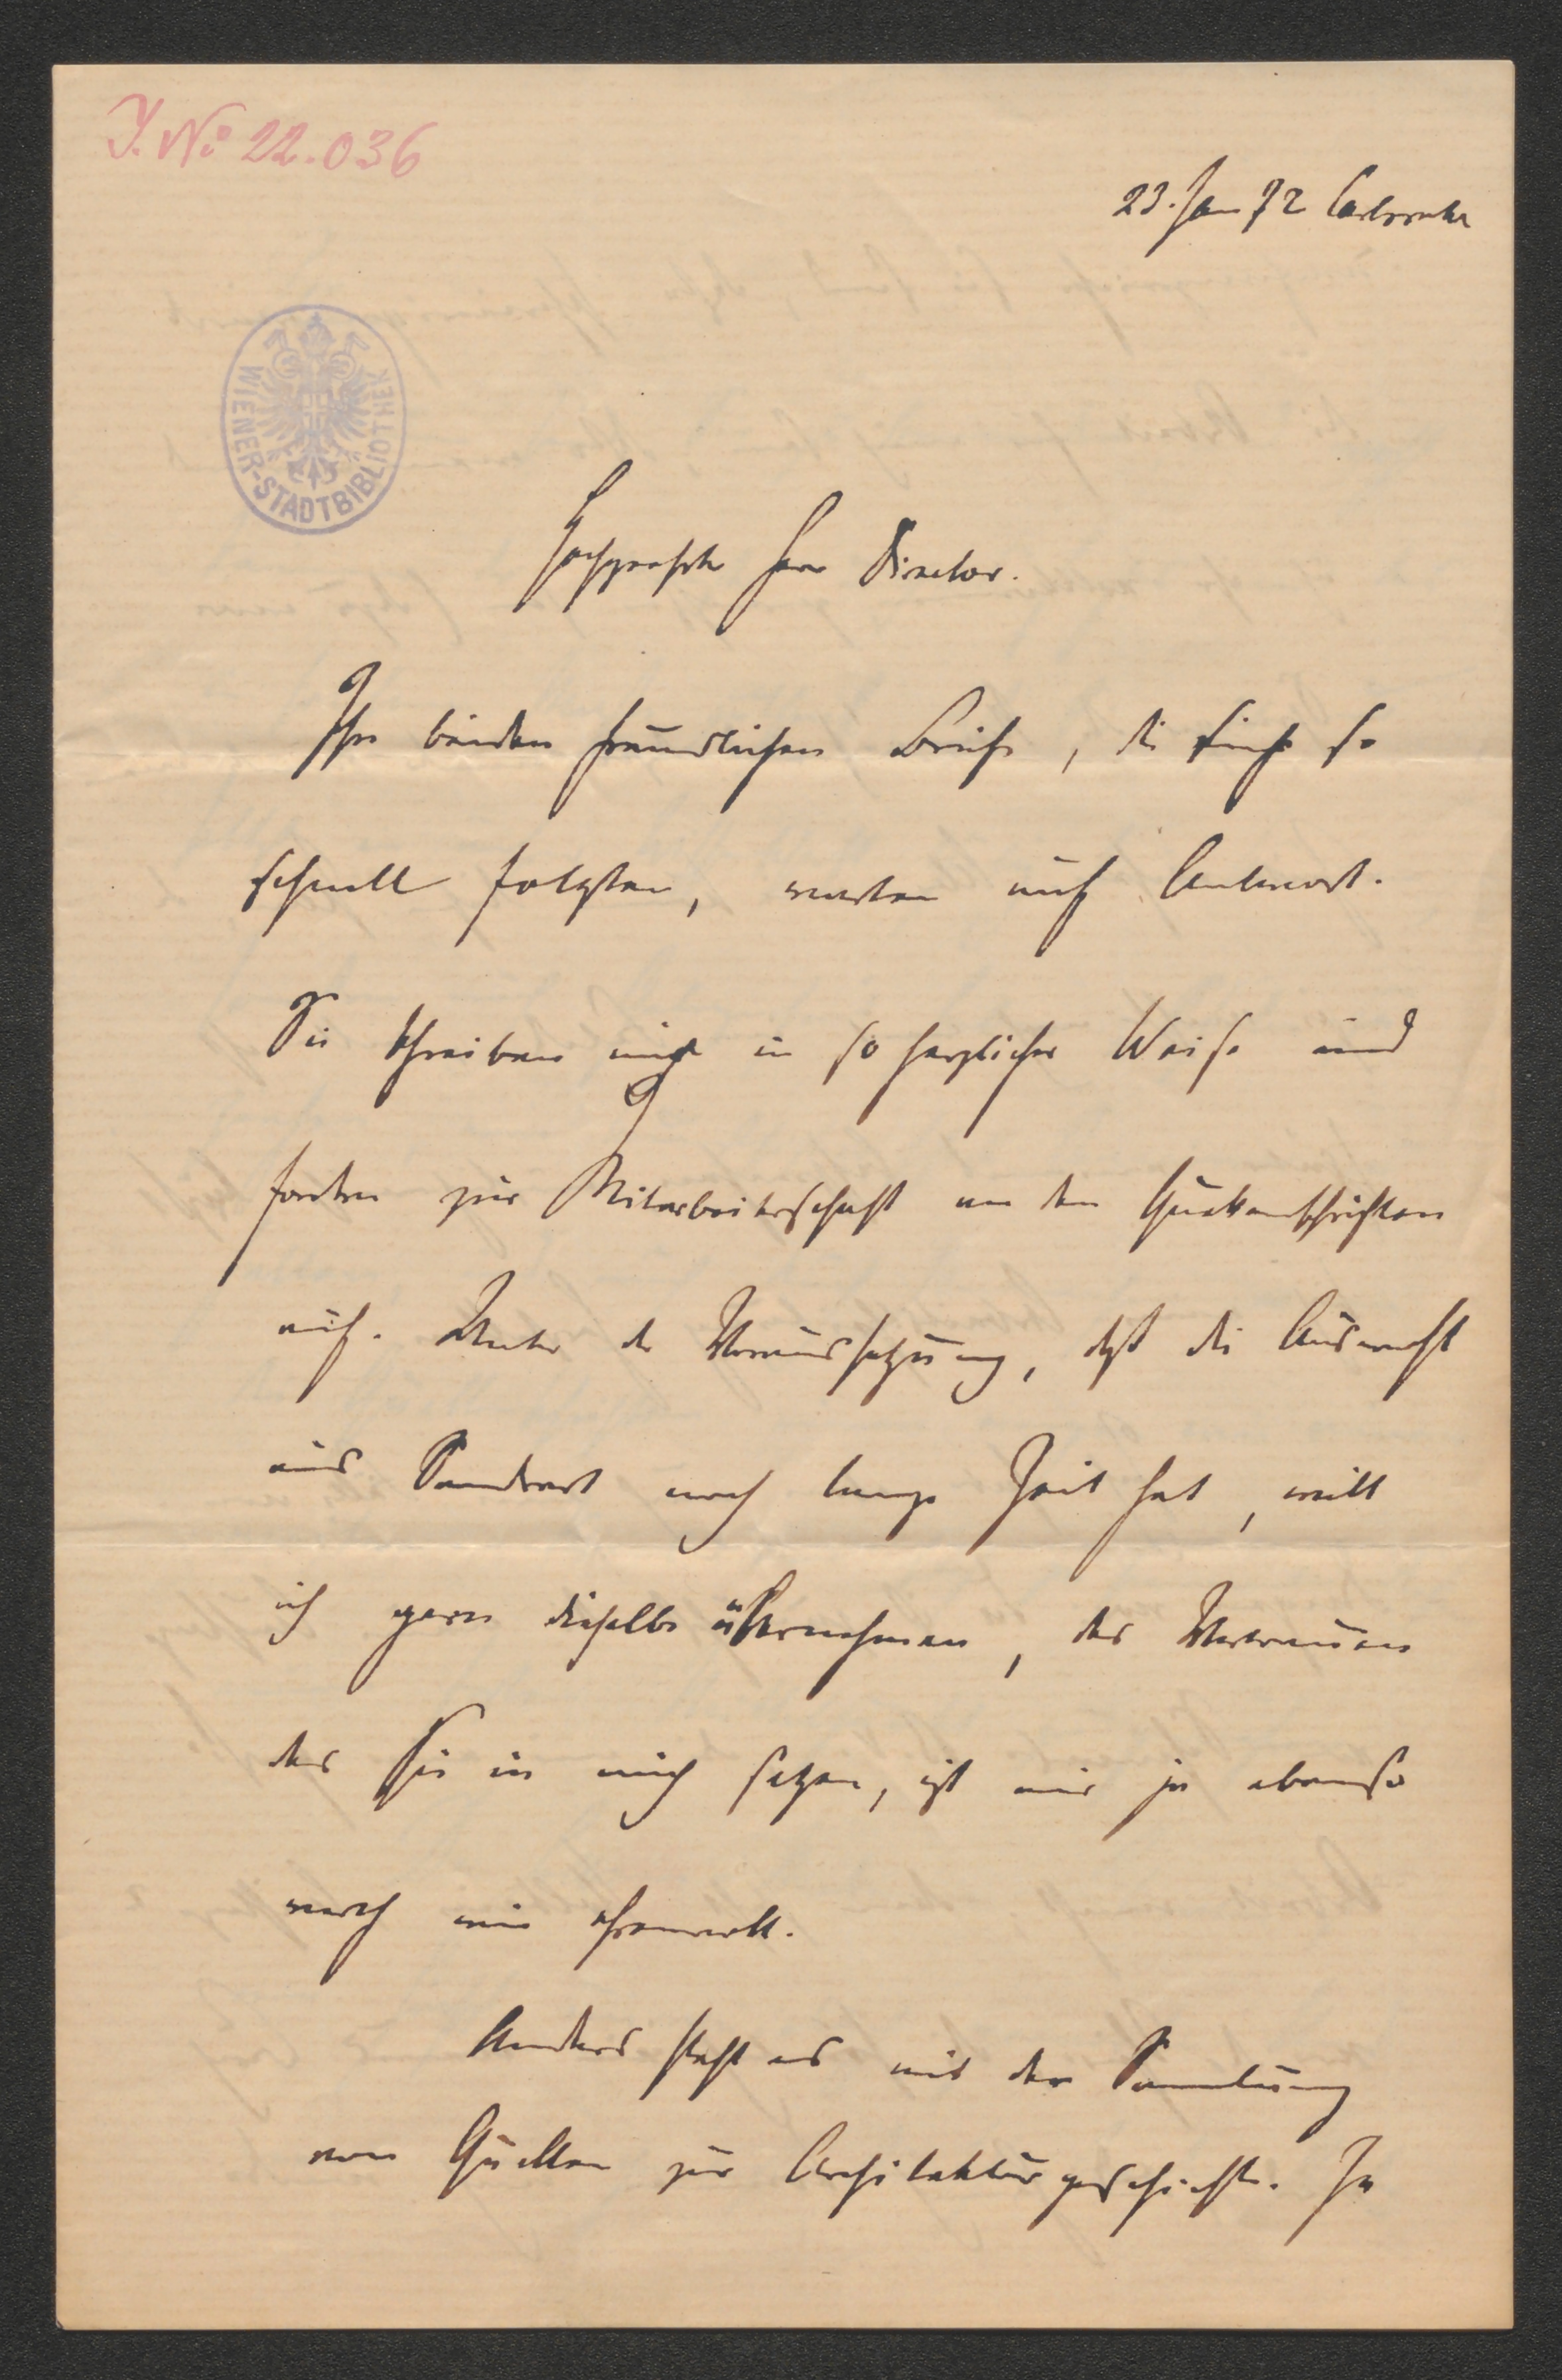 J. No 22.036
23. Jan 72 Carlsruhe
WIENER-STADTBIBLIOTHEK
Hochgeehrter Herr Director.
Ihre beiden freundlichen Briefe, die sich so
schnell folgten, warten auf Antwort.
Sie schreiben mir in so herzlicher Weise und
fordern zur Mitarbeiterschaft an den Quellenschriften
auf. Unter der Voraussetzung, daß die Auswahl
aus Sandrart noch lange Zeit hat, will
ich gern dieselbe übernehmen, das Vertrauen
das Sie in mich setzen, ist mir ja ebenso
werth wie ehrenvoll.
Anders steht es mit der Samlung
von Quellen zur Architekturgeschichte. Ja